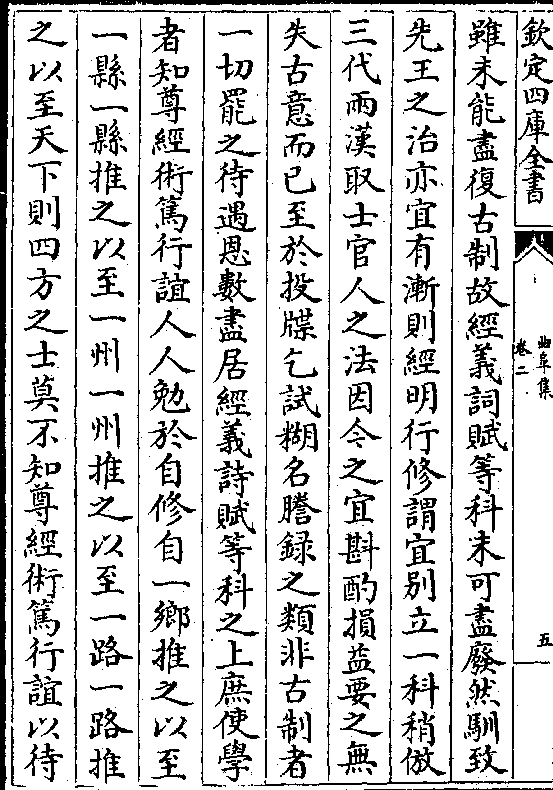 欽定四庫全書
曲阜集
卷二
五
雖未能盡復古制故經義詞賦等科未可盡廢然馴致
先王之治亦宜有漸則經明行修謂宜别立一科稍倣
三代兩漢取士官人之法因今之宜斟酌損益要之無
失古意而已至於投牒乞試糊名謄録之類非古制者
一切罷之待遇恩數盡居經義詩賦等科之上庶使學
者知尊經術篤行誼人人勉於自修自一鄉推之以至
一縣一縣推之以至一州一州推之以至一路一路推
之以至天下則四方之士莫不知尊經術篤行誼以待